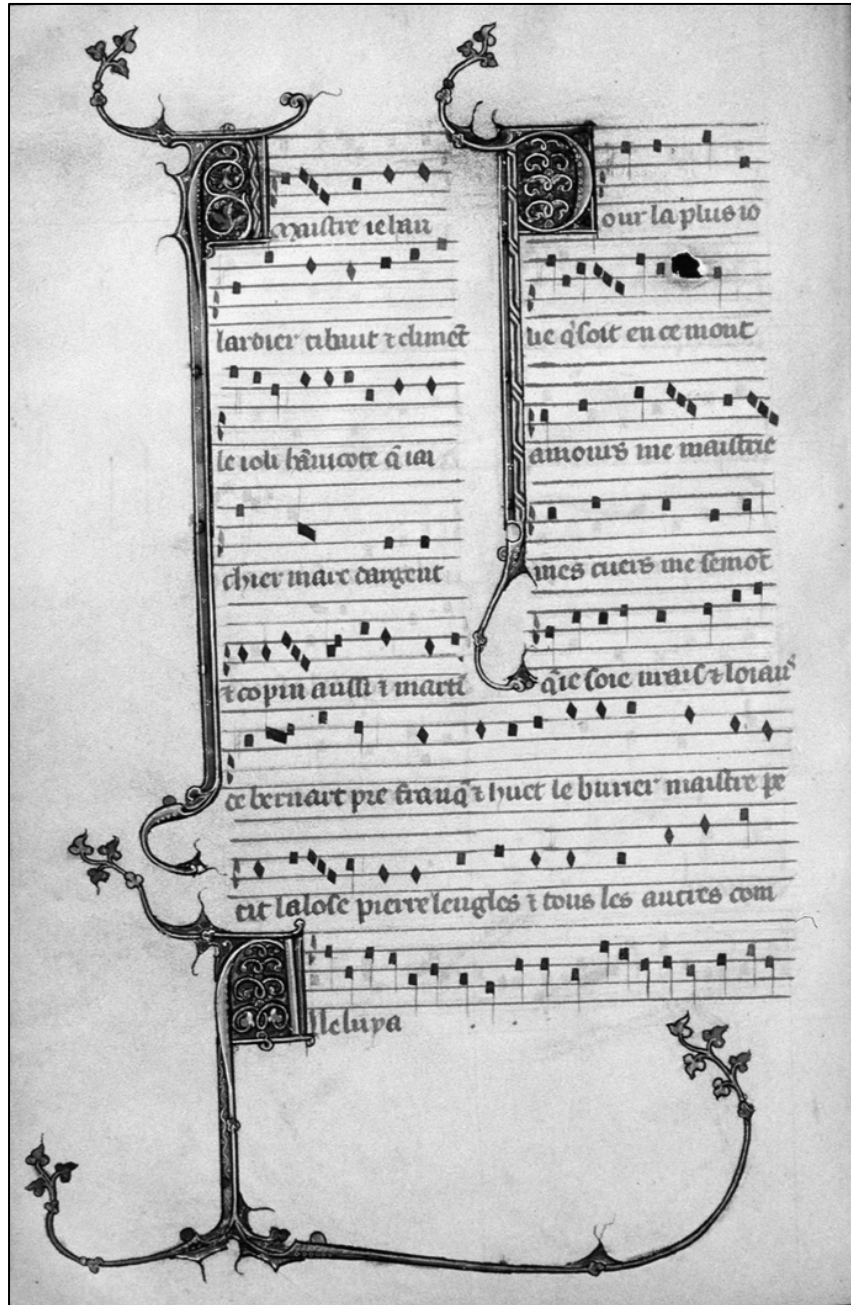 A maistre iehan
lardier tibaut ⁊ climẽt
le ioli hãnicote q̃ iai
chier marc dargent
⁊ copin aussi ⁊ marti
Pour la plus io
lie q̃ soit en ce mont
amours me maistrie
mes cuers me semõt
q̃ie soie urais ⁊ loiaus
ce bernart pre frauq̃ ⁊ huet le burier maistre pe
tit lalose pierre lengles ⁊ tous les autres com
Alleluya